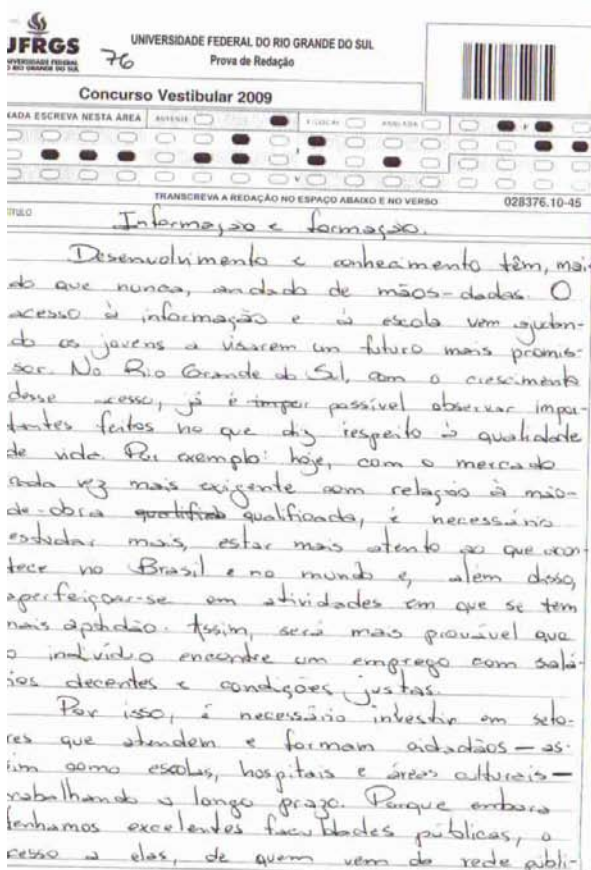 UFRGS
UNIVERSIDADE FEDERAL
DO RIO GRANDE DO SUL
76
UNIVERSIDADE FEDERAL DO RIO GRANDE DO SUL
Prova de Redação
Concurso Vestibular 2009
ESCREVA NESTA ÁREA
TRANSCREVA A REDAÇÃO NO ESPAÇO ABAIXO E NO VERSO 028376.10-45
TÍTULO Informação e formação.
Desenvolvimento e conhecimento têm, mais
do que nunca, andado de mãos-dadas. O
acesso à informação e à escola vem ajudan-
do os jovens a visarem um futuro mais promis-
sor. No Rio Grande do Sul, com o crescimento
desse acesso, já é possível observar impor-
tantes feitos no que diz respeito à qualidade
de vida. Por exemplo: hoje, com o mercado
cada vez mais exigente com relação à mão-
de-obra qualificada, é necessário
estudar mais, estar mais atento ao que acon-
tece no Brasil e no mundo e, além disso,
aperfeiçoar-se em atividades em que se tem
mais aptidão. Assim, será mais provável que
o indivíduo encontre um emprego com salá-
rios decentes e condições justas.
Por isso, é necessário investir em seto-
res que atendem e formam cidadãos — as-
sim como escolas, hospitais e áreas culturais —
trabalhando a longo prazo. Porque embora
tenhamos excelentes faculdades públicas, o
acesso a elas, de quem vem da rede públi-